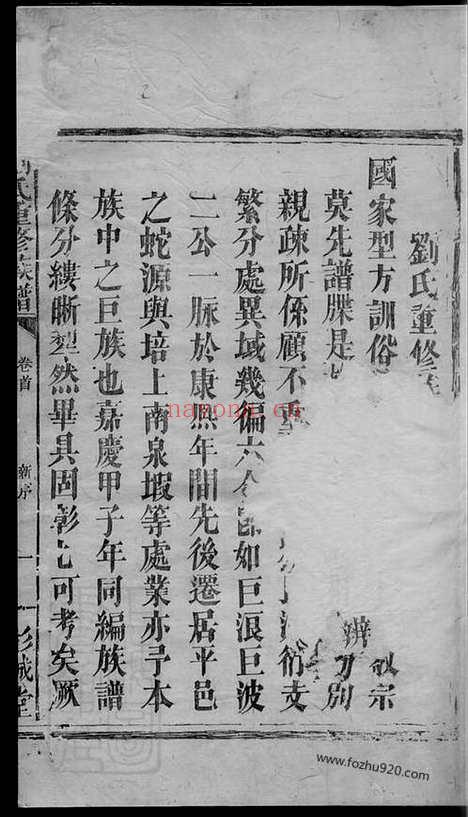 劉氏重修
國家型方訓俗 敬宗
莫先譜牒是 辨 別
親疎所係顧不重 衍支
繁分處異域幾偏六合 如巨浪巨波
二公一脉於康熙年間先後遷居平邑
之蛇源與培上南泉塅等處業亦予本
族中之巨族也嘉慶甲子年同編族譜
條分縷晰犁然畢具固彰乜可考矣厥
氏重修族譜 卷首 新序 一 彭城堂
nayona.cn
www.fozhu920.com